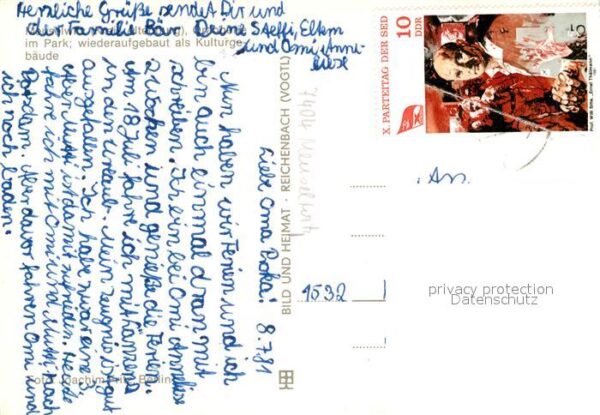 Herzliche Grüße sendet Dir und
der Familie Bär Deine Steffi, Eltern
und Omi Anne-
liese
im Park; wiederaufgebaut als Kulturge-
bäude
8.7.81
Liebe Oma
Nun haben wir Ferien und ich
bin auch einmal dran mit
schreiben. Ich bin bei Omi Anneliese
Zwocken und genieße die Ferien.
Am 18 Juli fahre ich mit
in den Urlaub. Mein Zeugnis ist gut
ausgefallen. Ich habe zwar eine 3
Aber Mutti ist damit zufrieden. Heute
fahre ich mit Omi und Mutti nach
Potsdam. Aber davor fahren Omi und
ich noch baden.
Foto: Joachim Fritz, Berlin
BILD UND HEIMAT · REICHENBACH (VOGTL)
7404 Meuselwitz
X. PARTEITAG DER SED
10
DDR
An
1532
privacy protection
Datenschutz